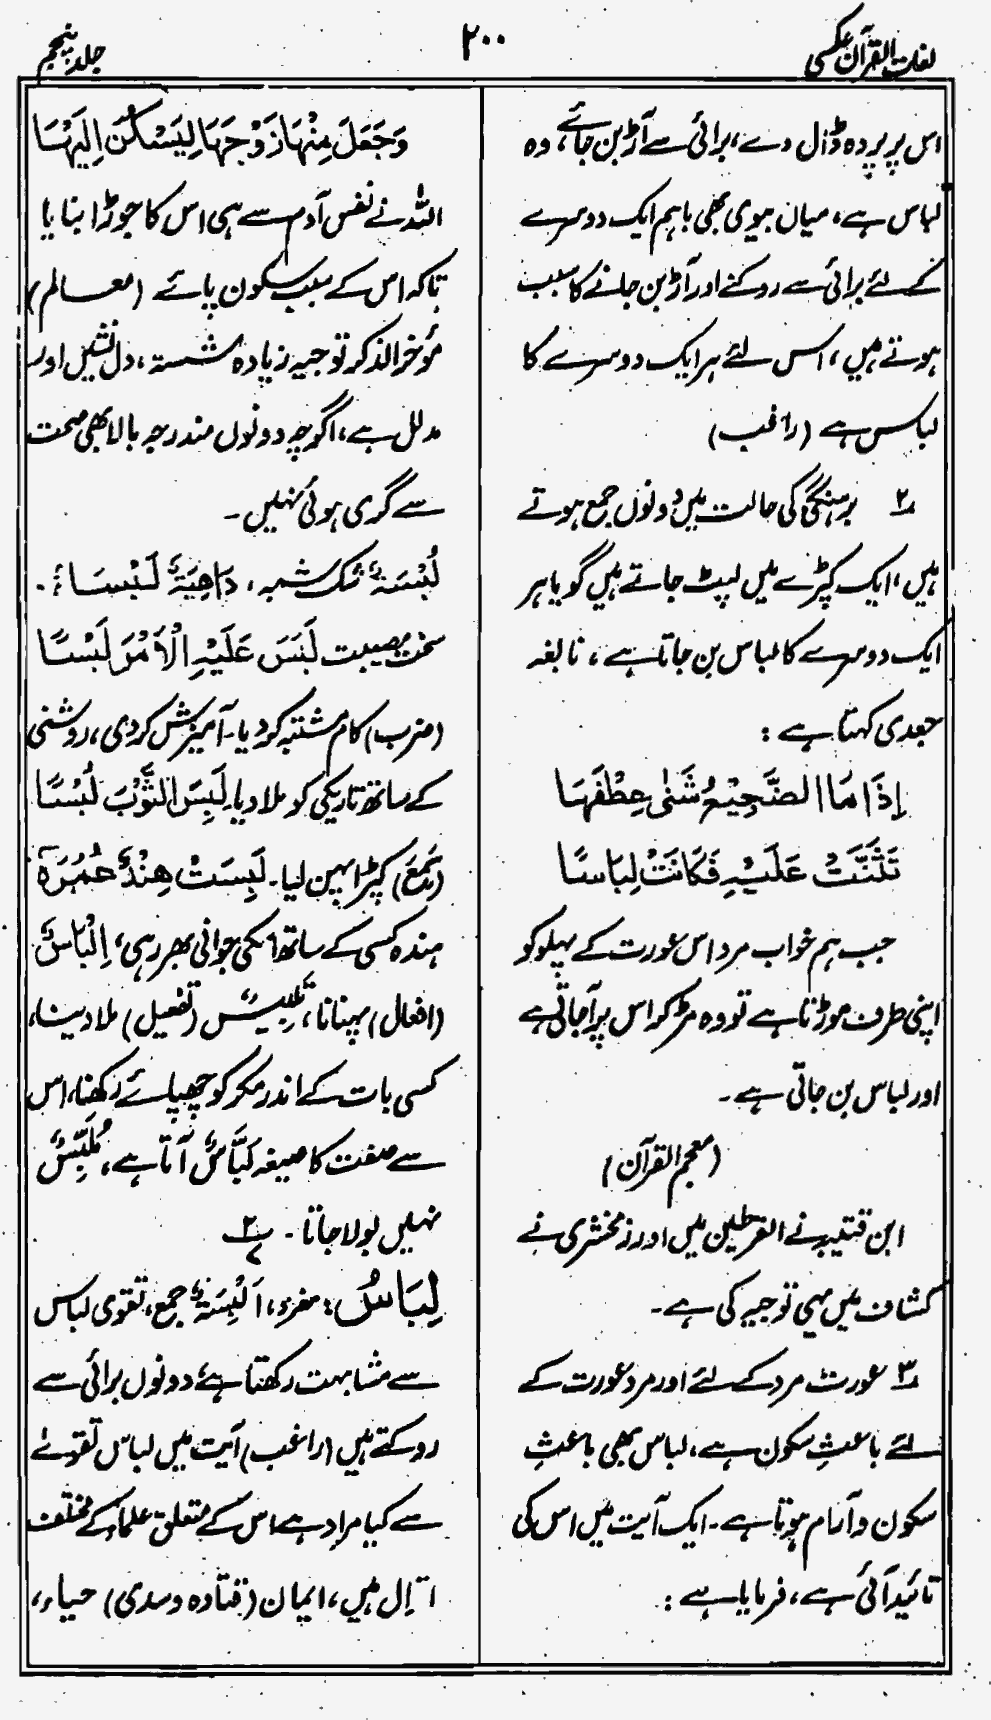 لغات القرآن عکسی
۲۰۰
جلد پنجم
اس پر پردہ ڈال دے، برائی سے آڑ بن جائے، وہ
لباس ہے، میان بیوی بھی باہم ایک دوسرے
کے لئے برائی سے روکنے اور آڑ بن جانے کا سبب
ہوتے ہیں، اس لئے ہر ایک دوسرے کا
لباس ہے (راغب)
۲ برہنگی کی حالت میں دونوں جمع ہوتے
ہیں، ایک کپڑے میں لپٹ جاتے ہیں گویا ہر
ایک دوسرے کا لباس بن جاتا ہے، نابغہ
جعدی کہتا ہے :
اِذَا مَا الضَّجِیْعُ شَنٰی عِطْفَهَا
تَثَنَّتْ عَلَیْهِ فَکَانَتْ لِبَاسًا
جب ہم خواب مرد اس عورت کے پہلو کو
اپنی طرف موڑتا ہے تو وہ مڑ کر اس پر آجاتی ہے
اور لباس بن جاتی ہے۔
(معجم القرآن)
ابن قتیبہ نے القرطین میں اور زمخشری نے
کشاف میں یہی توجیہ کی ہے۔
۳ عورت مرد کے لئے اور مرد عورت کے
لئے باعثِ سکون ہے، لباس بھی باعثِ
سکون و آرام ہوتا ہے۔ ایک آیت میں اس کی
تائید آئی ہے، فرمایا ہے :
وَجَعَلَ مِنْهَا زَوْجَهَا لِیَسْکُنَ اِلَیْهَا
اللہ نے نفس آدم سے ہی اس کا جوڑا بنایا
تاکہ اس کے سبب سکون پائے (معالم)
مؤخر الذکر توجیہ زیادہ شستہ، دل نشیں اور
مدلل ہے، اگرچہ دونوں مندرجہ بالا بھی صحت
سے گری ہوئی نہیں۔
لُبْسَةٌ شک شبہ، دَاهِیَةٌ لَبْسَاءُ۔
سخت مصیبت لَبَسَ عَلَیْهِ الْاَمْرَ لَبْسًا
(ضرب) کام مشتبہ کر دیا۔ آمیزش کردی، روشنی
کے ساتھ تاریکی کو ملا دیا۔ لَبِسَ الثَّوْبَ لُبْسًا
(سَمِعَ) کپڑا پہن لیا۔ لَبِسَتْ هِنْدٌ عُمُرَهٗ
ہندہ کسی کے ساتھ اسکی جوانی بھر رہی، اِلْبَاسٌ
(افعال) پہنانا، تَلْبِیْسٌ (تفعیل) ملا دینا،
کسی بات کے اندر مکر کو چھپائے رکھنا، اس
سے صفت کا صیغہ لَبَّاسٌ آتا ہے، مُلَبِّسٌ
نہیں بولا جاتا۔ ۲/۷
لِبَاسُ : مفرد، اَلْبِسَةٌ جمع، تقوی لباس
سے مشابہت رکھتا ہے دونوں برائی سے
روکتے ہیں (راغب) آیت میں لباس تقوےٰ
سے کیا مراد ہے اس کے متعلق علماء کے مختلف
اقوال ہیں، ایمان (قتادہ و سدی) حیاء،